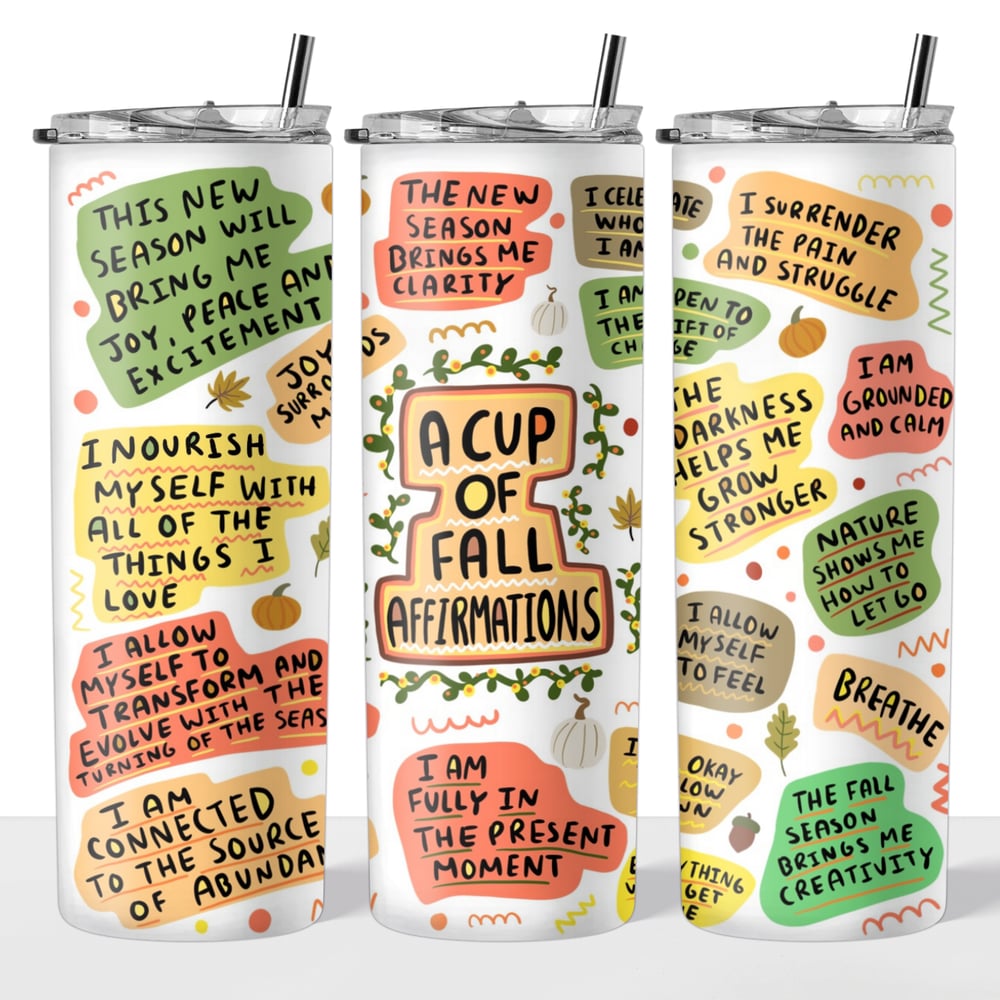 THIS NEW
SEASON WILL
BRING ME
JOY, PEACE AND
EXCITEMENT
JOY
I NOURISH
MYSELF WITH
ALL OF THE
THINGS I
LOVE
I ALLOW
MYSELF TO
TRANSFORM AND
EVOLVE WITH THE
TURNING OF THE SEAS
I AM
CONNECTED
TO THE SOURCE
OF ABUNDAN
THE NEW
SEASON
BRINGS ME
CLARITY
I CELE
WHO
I AM
I AM
THE
CH
DS
A CUP
OF
FALL
AFFIRMATIONS
I AM
FULLY IN
THE PRESENT
MOMENT
I
ATE
I SURRENDER
THE PAIN
AND STRUGGLE
PEN TO
IFT OF
GE
THE
DARKNESS
HELPS ME
GROW
STRONGER
I AM
GROUNDED
AND CALM
NATURE
SHOWS ME
HOW TO
LET GO
I ALLOW
MYSELF
TO FEEL
BREATHE
OKAY
LOW
WN
THE FALL
SEASON
BRINGS ME
CREATIVITY
YTHING
GET
E